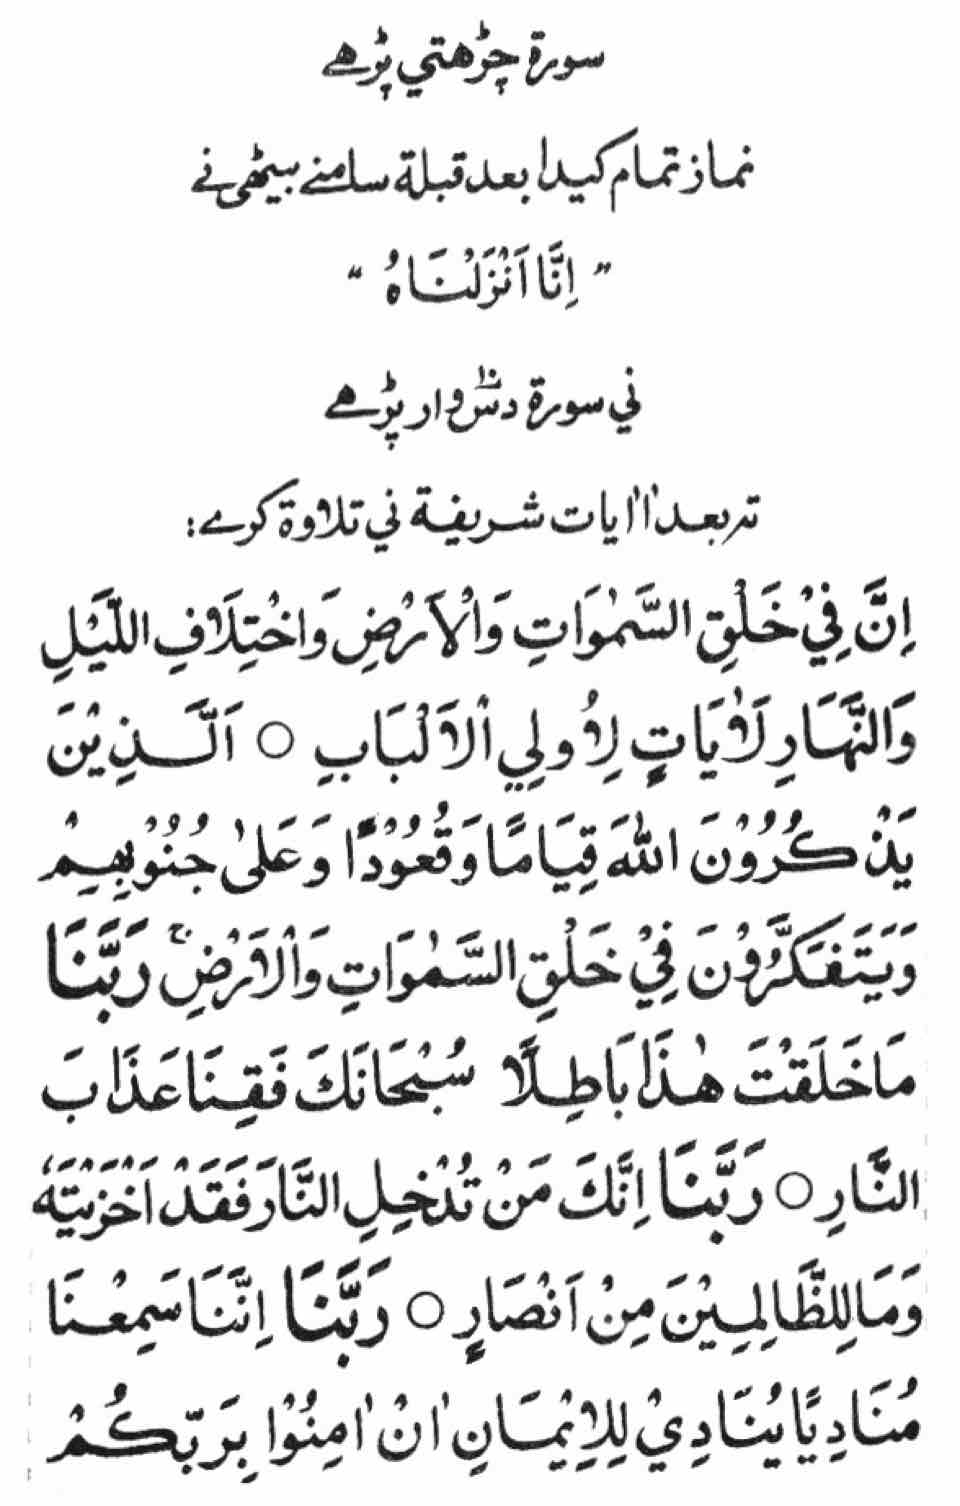 سورة چڑهتي پڑهے
نماز تمام كيدا بعد قبلة سامنے بيٹھی نے
" اِنَّا اَنْزَلْنَاهُ "
ني سورة دس۱۰ وار پڑهے
ته بعد اٰ اٰيات شريفة ني تلاوة كرے:
اِنَّ فِيْ خَلْقِ السَّمٰوَاتِ وَالْاَرْضِ وَاخْتِلَافِ اللَّيْلِ
وَالنَّهَارِ لَاٰيَاتٍ لِاُولِي الْاَلْبَابِ ○ اَلَّذِيْنَ
يَذْكُرُوْنَ اللهَ قِيَامًا وَقُعُوْدًا وَعَلىٰ جُنُوْبِهِمْ
وَيَتَفَكَّرُوْنَ فِيْ خَلْقِ السَّمٰوَاتِ وَالْاَرْضِ ج رَبَّنَا
مَا خَلَقْتَ هٰذَا بَاطِلًا سُبْحَانَكَ فَقِنَا عَذَابَ
النَّارِ ○ رَبَّنَا اِنَّكَ مَنْ تُدْخِلِ النَّارَ فَقَدْ اَخْزَيْتَهٗ
وَمَا لِلظَّالِمِيْنَ مِنْ اَنْصَارٍ ○ رَبَّنَا اِنَّنَا سَمِعْنَا
مُنَادِيًا يُنَادِيْ لِلْاِيْمَانِ اَنْ اٰمِنُوْا بِرَبِّكُمْ